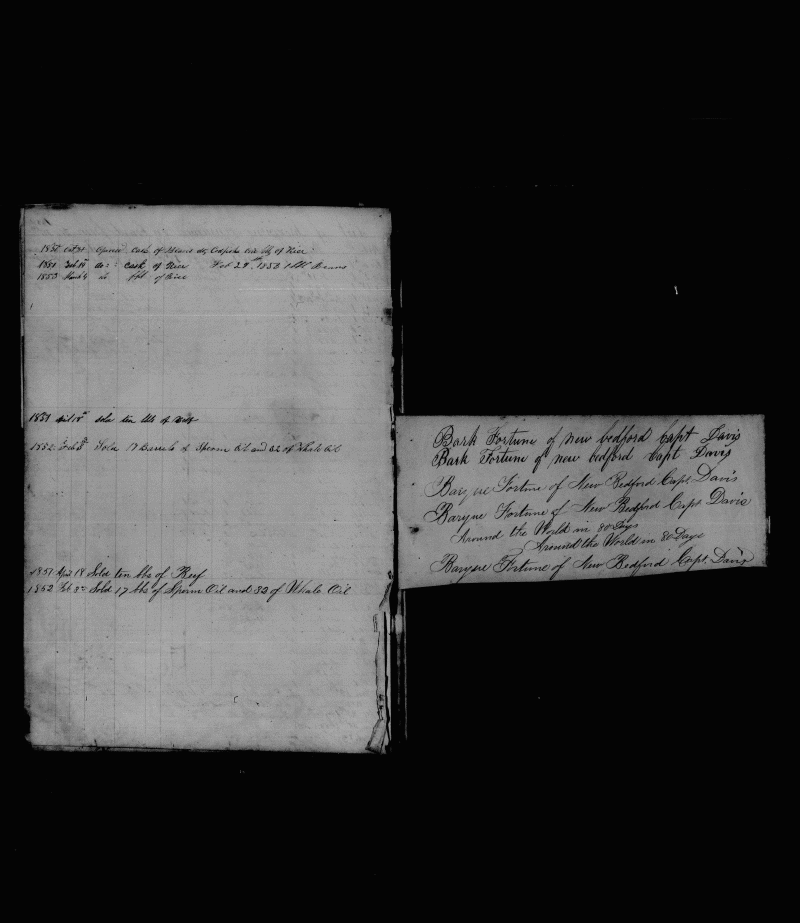 1850 Oct 31 Opened Cask of
1851 Feb 14 do : Cask of Rice Feb 29th 1853 1 bbl Beans
1853 March 9 do bbl of Rice
1851 April 18th Sold ten bbls of Beef
1852 Feb 8th Sold 17 Barrels of Sperm Oil and 32 of Whale Oil
1851 April 18 Sold ten bbs of Beef
1852 Feb 8th Sold 17 bbs of Sperm Oil and 32 of Whale Oil
Bark Fortune of new bedford Capt Davis
Bark Fortune of new bedford Capt Davis
Barque Fortune of New Bedford Capt Davis
Barque Fortune of New Bedford Capt Davis
Around the World in 80 Days
Around the World in 80 Days
Barque Fortune of New Bedford Capt. Davis